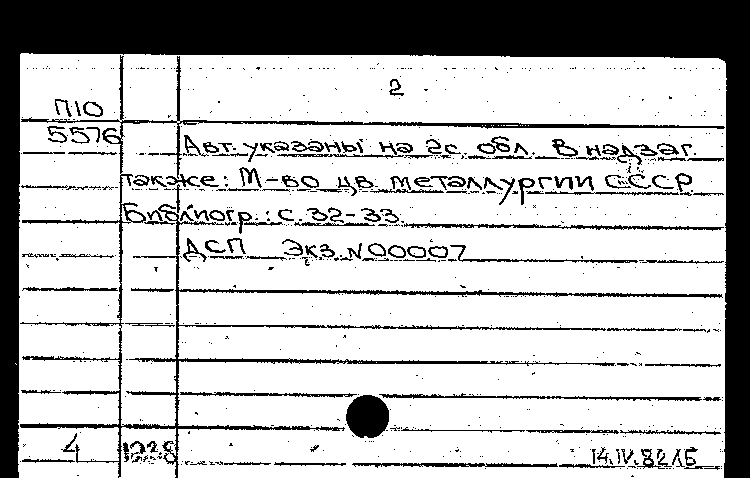 2
П10
5576
Авт. указаны на 2с. обл. В надзаг.
также: М-во цв. металлургии СССР
Библиогр.: с. 32-33
ДСП Экз. N00007
4 1228 14.IV.82